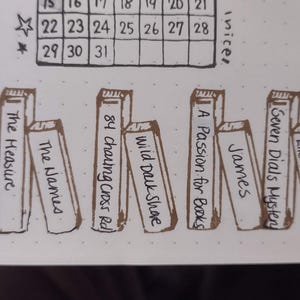 15 16 17 18 19 20 21
22 23 24 25 26 27 28
29 30 31
The Measure
The Names
84 Charing Cross Rd
Wild Dark Shore
A Passion for Books
James
Seven Dials Mystery